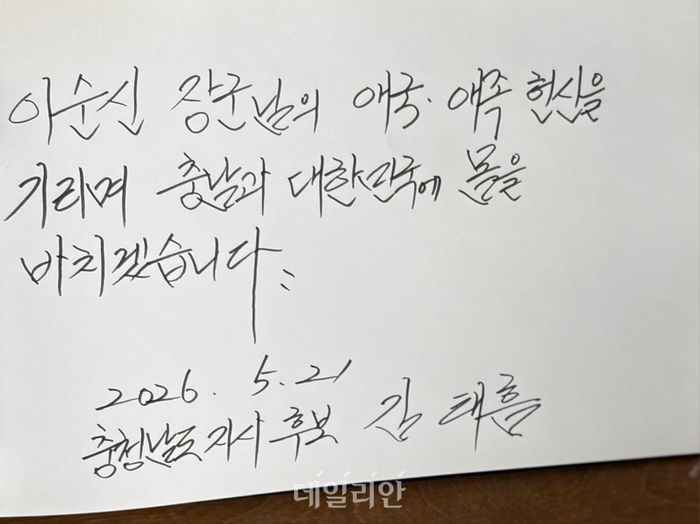 이순신 장군님의 애국·애족 헌신을
기리며 충남과 대한민국에 몸을
바치겠습니다.
2026. 5. 21
충청남도지사 후보 김태흠
데일리안